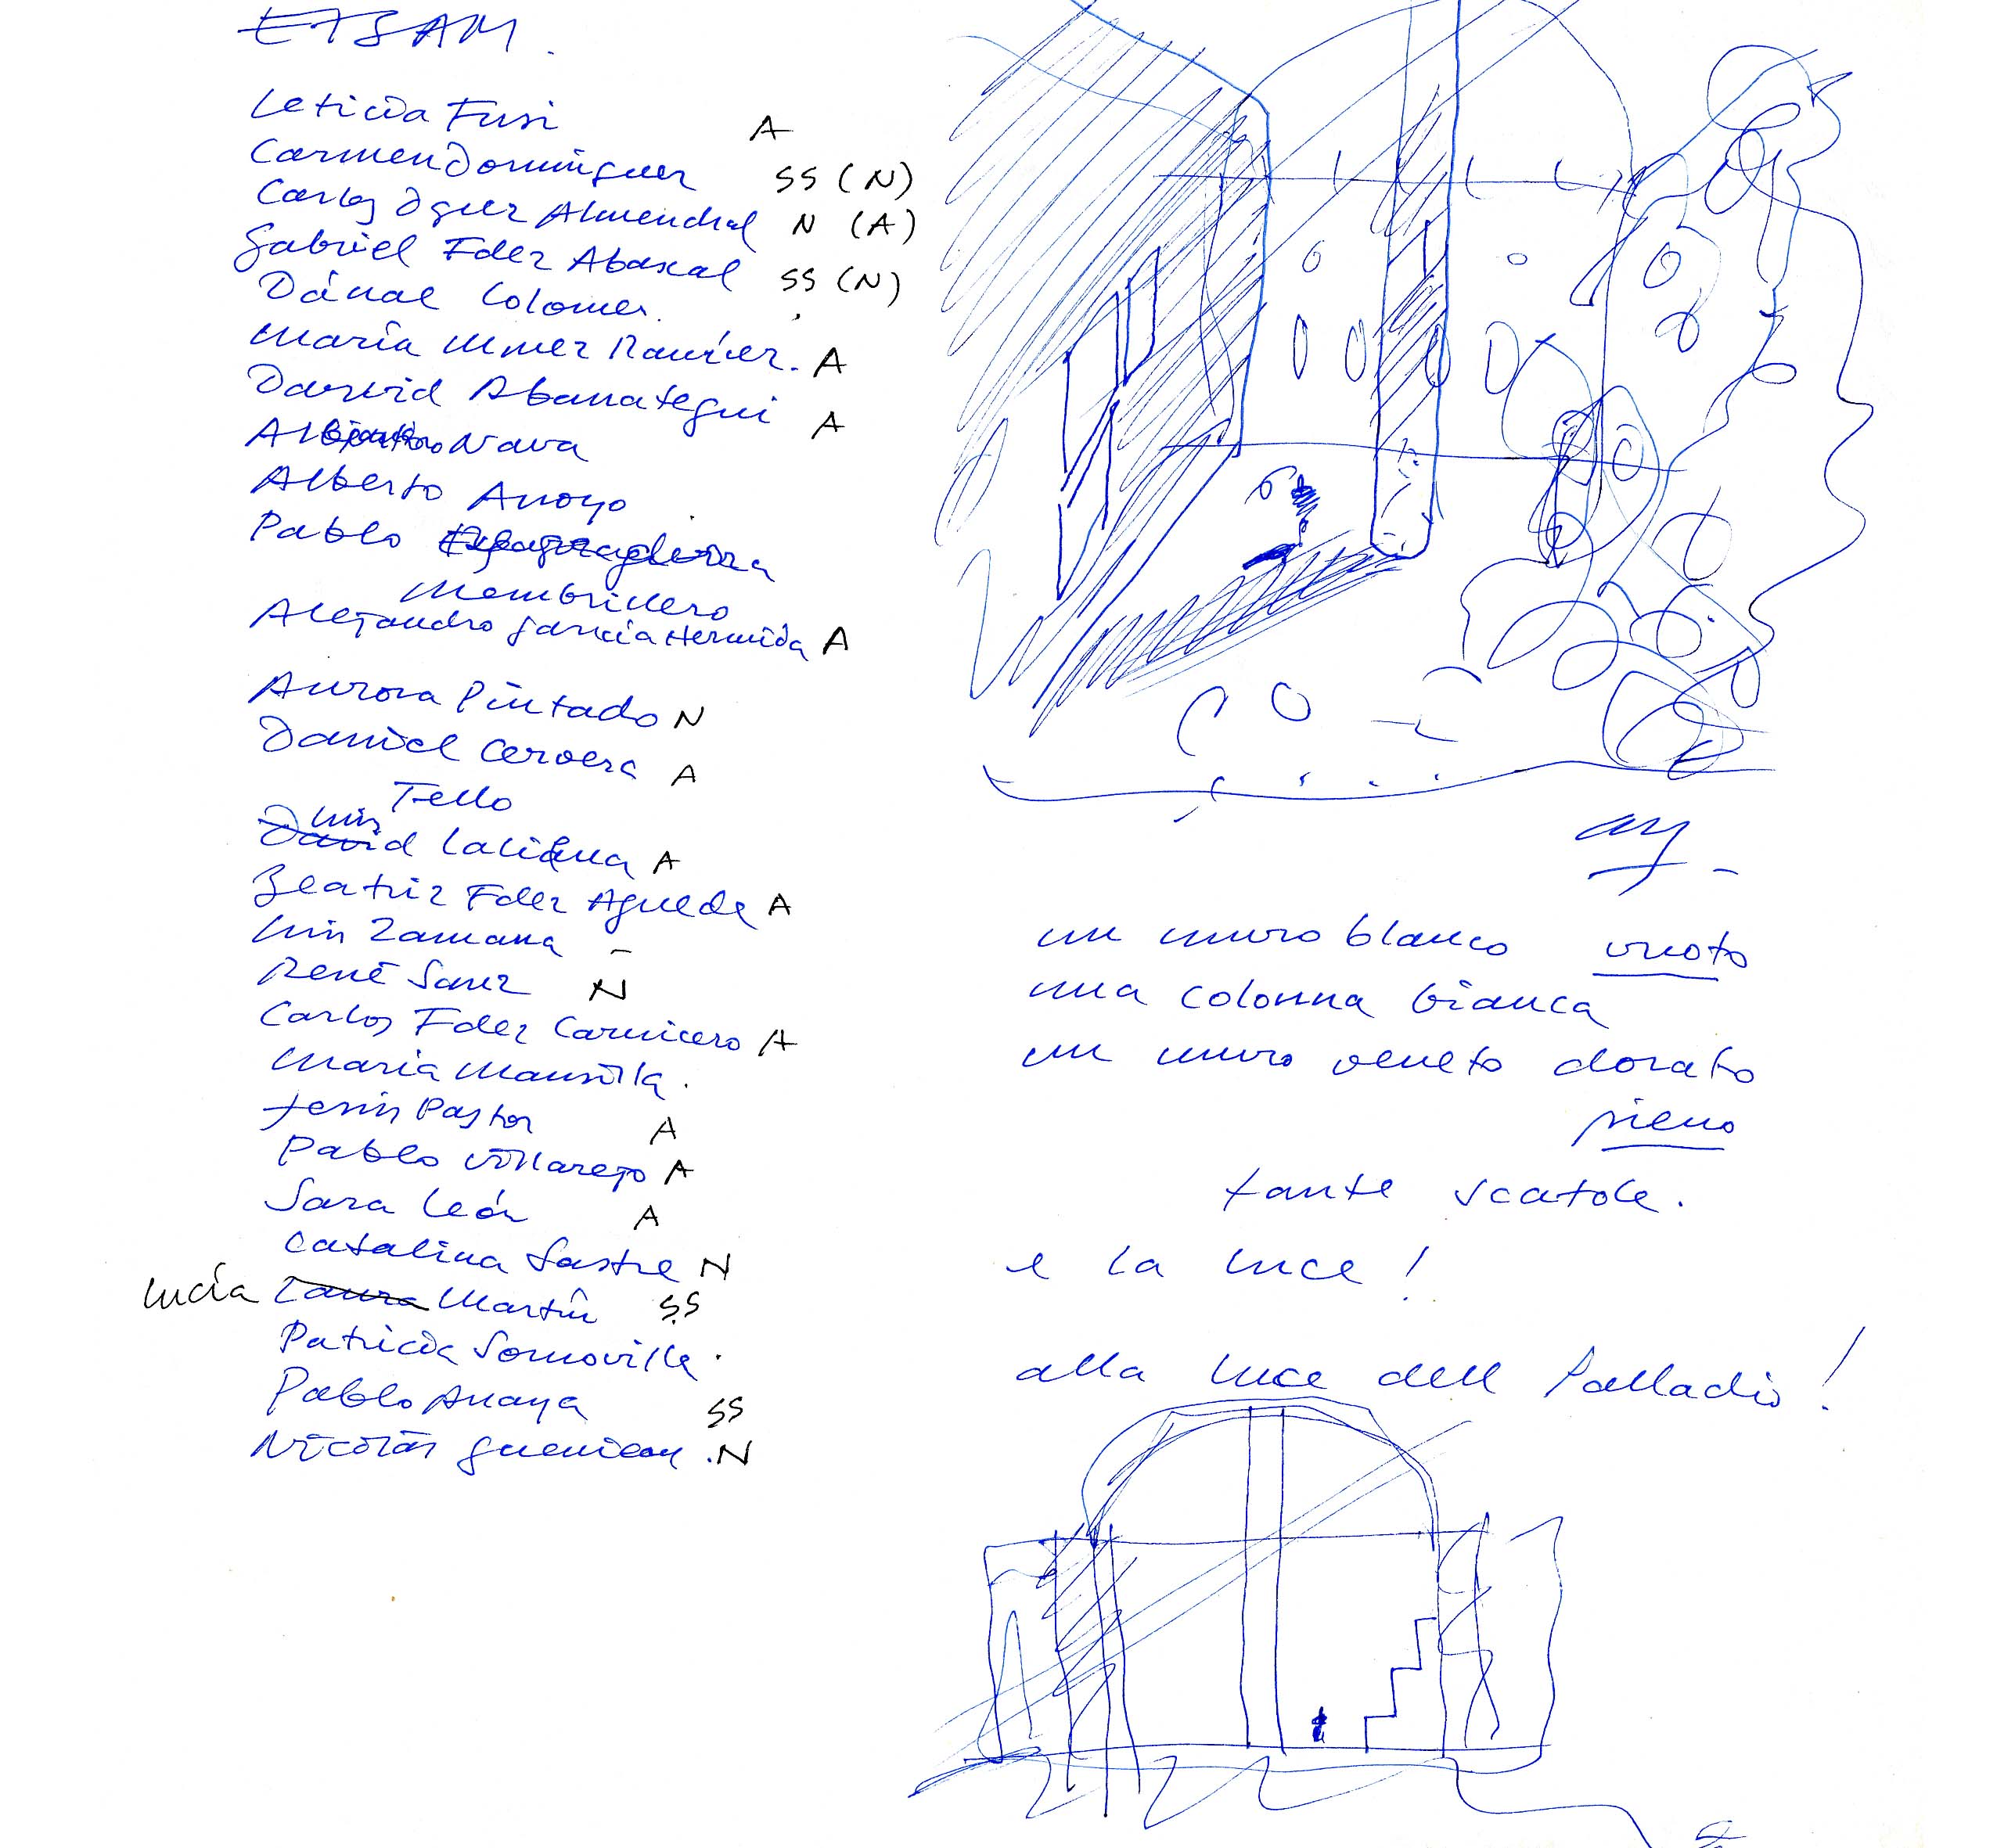 ETSAM.
Leticia Fusi A
Carmen Dominguez SS (N)
Carlos Dguez Almendral N (A)
Gabriel Fdez Abascal SS (N)
Dánae Colomer.
María Mnez Ramírez. A
David Abanategui A
Nava
Alberto Arroyo
Pablo
Membrillero
Alejandro García Hermida A
Aurora Pintado N
Daniel Cervera A
Tello
Luis
David Laliena A
Beatriz Fdez Agueda A
Luis Zamana -
René Sanz N
Carlos Fdez Carnicero A
María Mansilla.
Jesús Pastor A
Pablo Villarejo A
Sara León A
Catalina Sastre N
Lucía Laura Martín SS
Patricia Somovilla.
Pablo Anaya SS
Nicolás .N
un muro blanco vuoto
una colonna bianca
un muro veneto dorato
pieno
tante scatole.
e la luce!
alla luce dell Palladio!